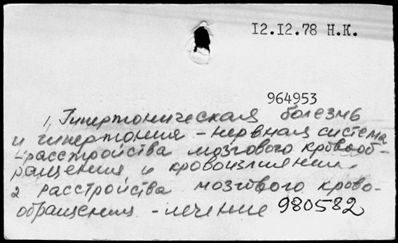 12.12.78 Н.К.
964953
1, Гипертоническая болезнь
и гипертония - нервная система
- расстройства мозгового кровооб-
ращения и кровоизлияния -
2 расстройства мозгового крово-
обращения - лечение 980582